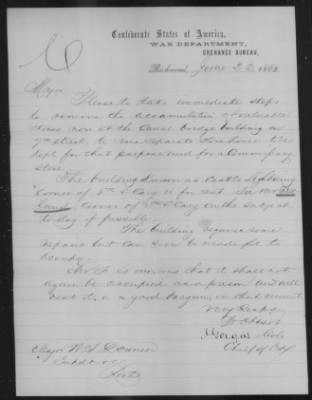 Confederate States of America,
WAR DEPARTMENT,
ORDNANCE BUREAU,
Richmond, June 22 1863
Major
Please to take immediate steps
to remove the accumulation of valuable
stores now at the Canal bridge building on
7th street, to some separate storehouse to be
kept for that purpose and for a temporary
store
The building known as Castle
Corner of & Cary is for rent. See
Corner of & Cary on the subject
to day if possible.
The building requires some
repairs but can soon be made fit to
occupy.
Mr. is anxious that it shall not
again be occupied as a prison and will
rent it, at a good bargain, on that account
Very Respy
J Gorgas Col
Chief of Ord
Major W. S. Downer
Supdt